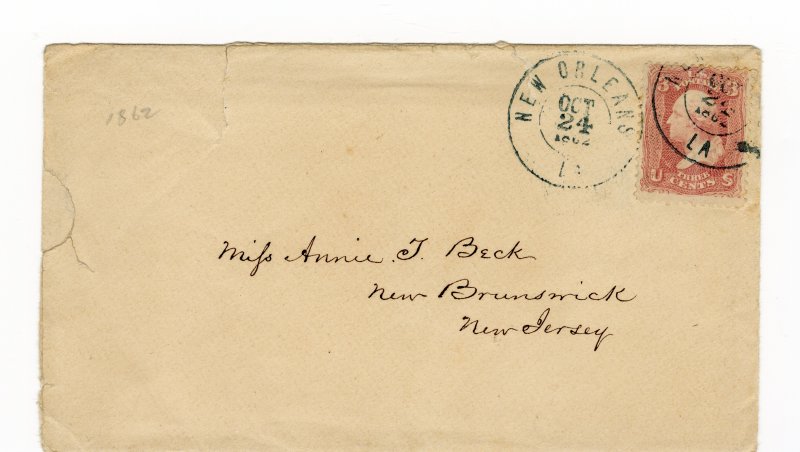 1862
NEW ORLEANS
OCT
24
1862
LA
3 3
U THREE S
CENTS
LA
Miſs Annie. T. Beck
New Brunswick
New Jersey